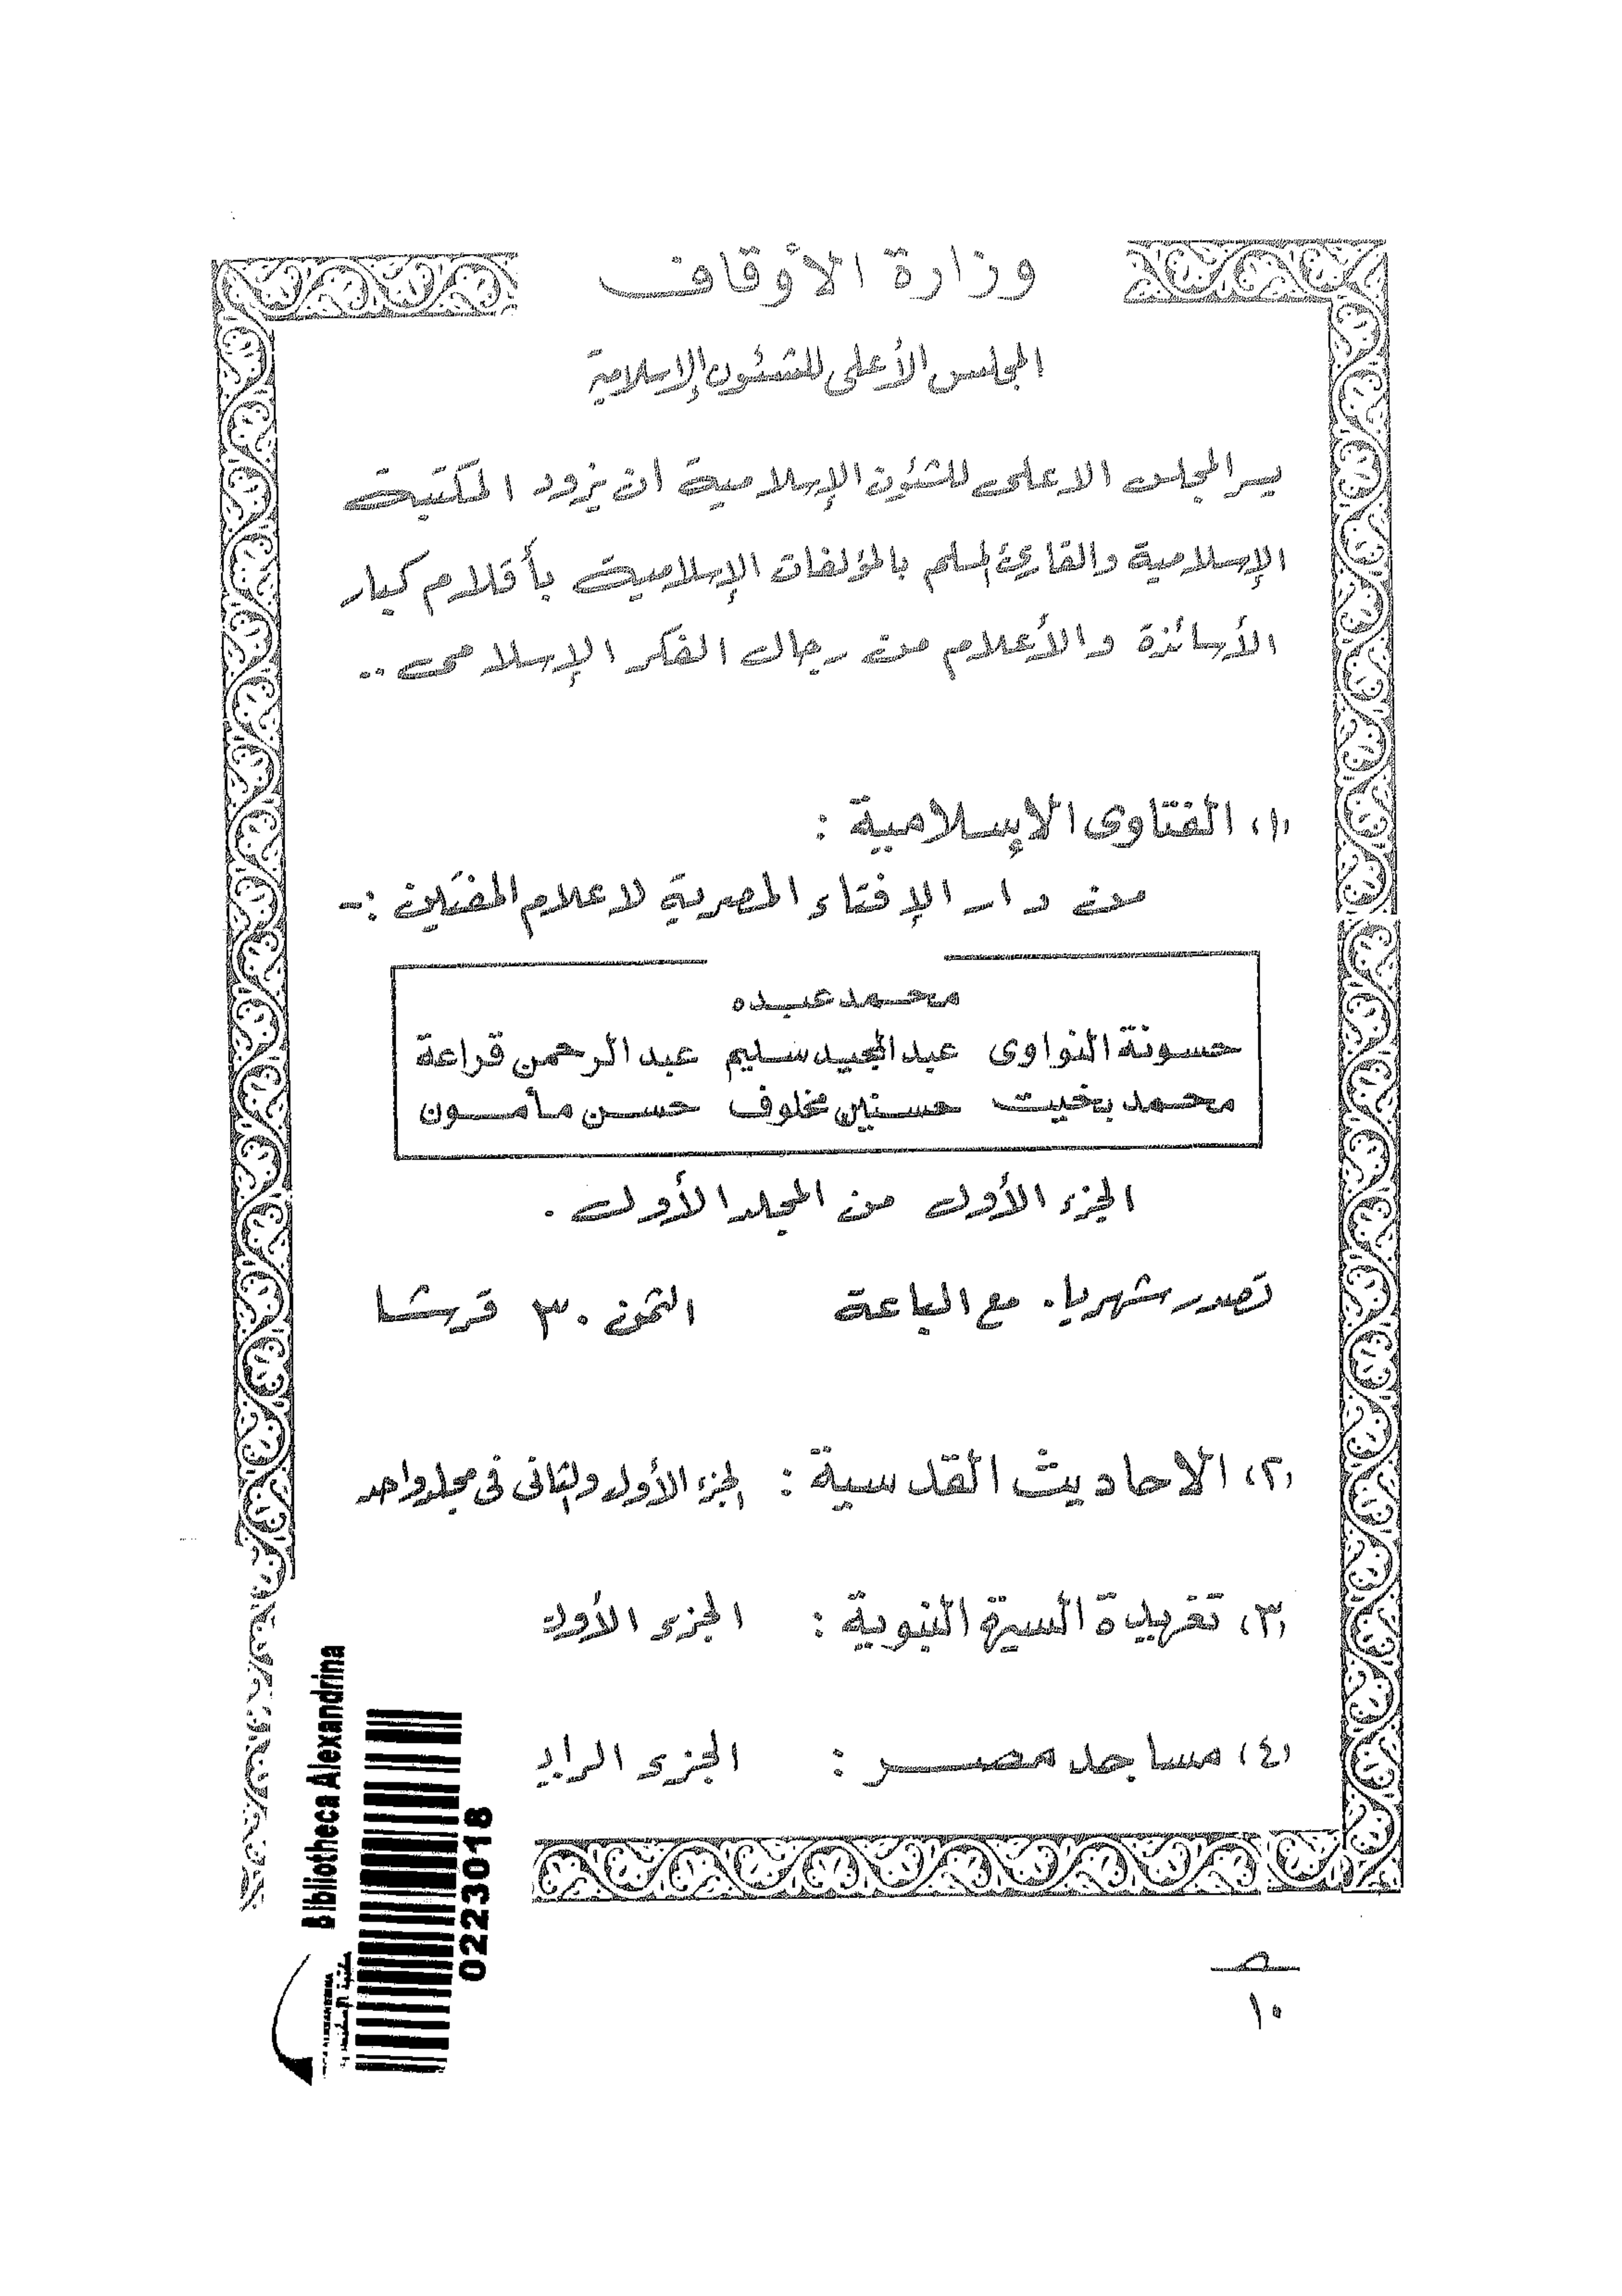 وزارة الأوقاف
المجلس الأعلى للشئون الإسلامية
يسر المجلس الاعلى للشئون الإسلامية ان يزود المكتبة
الإسلامية والقارئ المسلم بالمؤلفات الإسلامية بأقلام كبار
الأساتذة والأعلام من رجال الفكر الإسلامى ..
(١) الفتاوى الإسلامية :
من دار الإفتاء المصرية لاعلام المفتين :-
محمد عبده
حسونة النواوى عبد المجيد سليم عبد الرحمن قراعة
محمد بخيت حسنين مخلوف حسن مأمون
الجزء الأول من المجلد الأول .
تصدر شهريا . مع الباعة الثمن ٣٠ قرشا
(٢) الاحاديث القدسية : الجزء الأول والثانى فى مجلد واحد
(٣) تغريدة السيرة النبوية : الجزء الأول
(٤) مساجد مصر : الجزء الراب
Bibliotheca Alexandrina
0223018
١٠